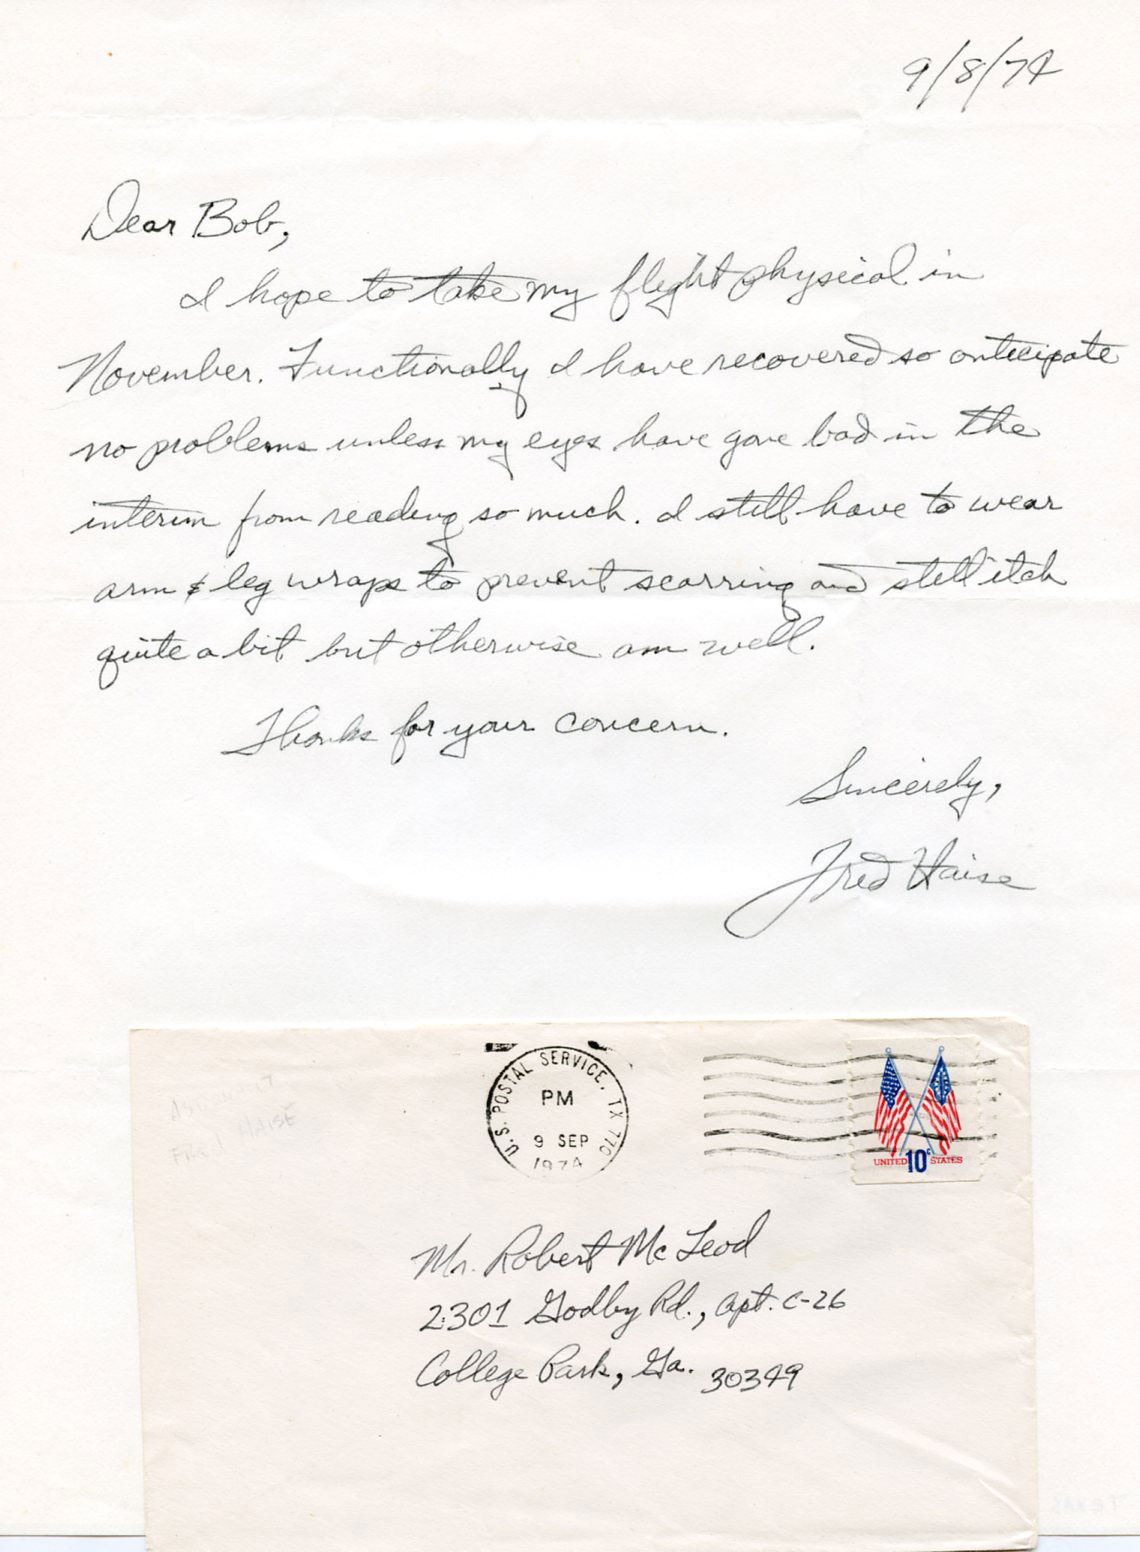 9/8/74
Dear Bob,
I hope to take my flight physical in
November. Functionally I have recovered so anticipate
no problems unless my eyes have gone bad in the
interim from reading so much. I still have to wear
arm & leg wraps to prevent scarring and still itch
quite a bit but otherwise am well.
Thanks for your concern.
Sincerely,
Fred Haise
U.S. POSTAL SERVICE, TX 770
PM
9 SEP
1974
UNITED 10c STATES
HAISE
Mr. Robert McLeod
2301 Godby Rd., Apt. C-26
College Park, Ga. 30349
TEXAS